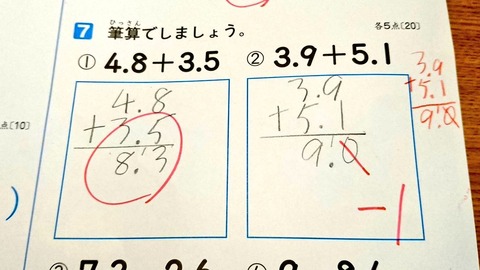 7 筆算でしましょう。 各5点〔20〕
ひっさん
① 4.8＋3.5 ② 3.9＋5.1
4.8
+3.5
8.3
3.9
+5.1
9.0
-1
3.9
+5.1
9.0
点〔10〕
)